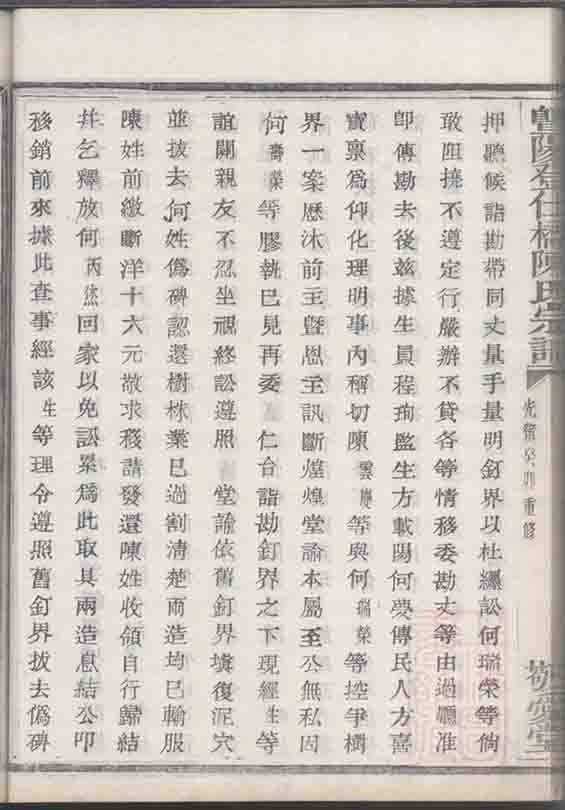 暨陽登仕橋陳氏宗譜
光緒癸卯重修
敬愛堂
押聽候詣勘帶同丈量手量明釘界以杜纏訟何瑞榮等倘
敢阻撓不遵定行嚴辦不貸各等情移委勘丈等由過廳准
卽傳勘去後兹據生員程珣監生方載陽何夢傳民人方喜
寶稟為仰化理明事內稱切陳雲慶等與何瑞榮等控爭樹
界一案歷沐前主暨恩主訊斷煌煌堂諭本屬至公無私因
何壽榮等膠執已見再委 仁台詣勘釘界之下現經生等
誼關親友不忍坐視終訟遵照 堂諭依舊釘界塡復泥穴
並拔去何姓偽碑認還樹株業已過割淸楚兩造均已輸服
陳姓前繳斷洋十六元敬求移請發還陳姓收領自行歸結
幷乞釋放何丙 回家以免訟累為此取具兩造息結公叩
移銷前來據此查事經該生等理令遵照舊釘界拔去偽碑